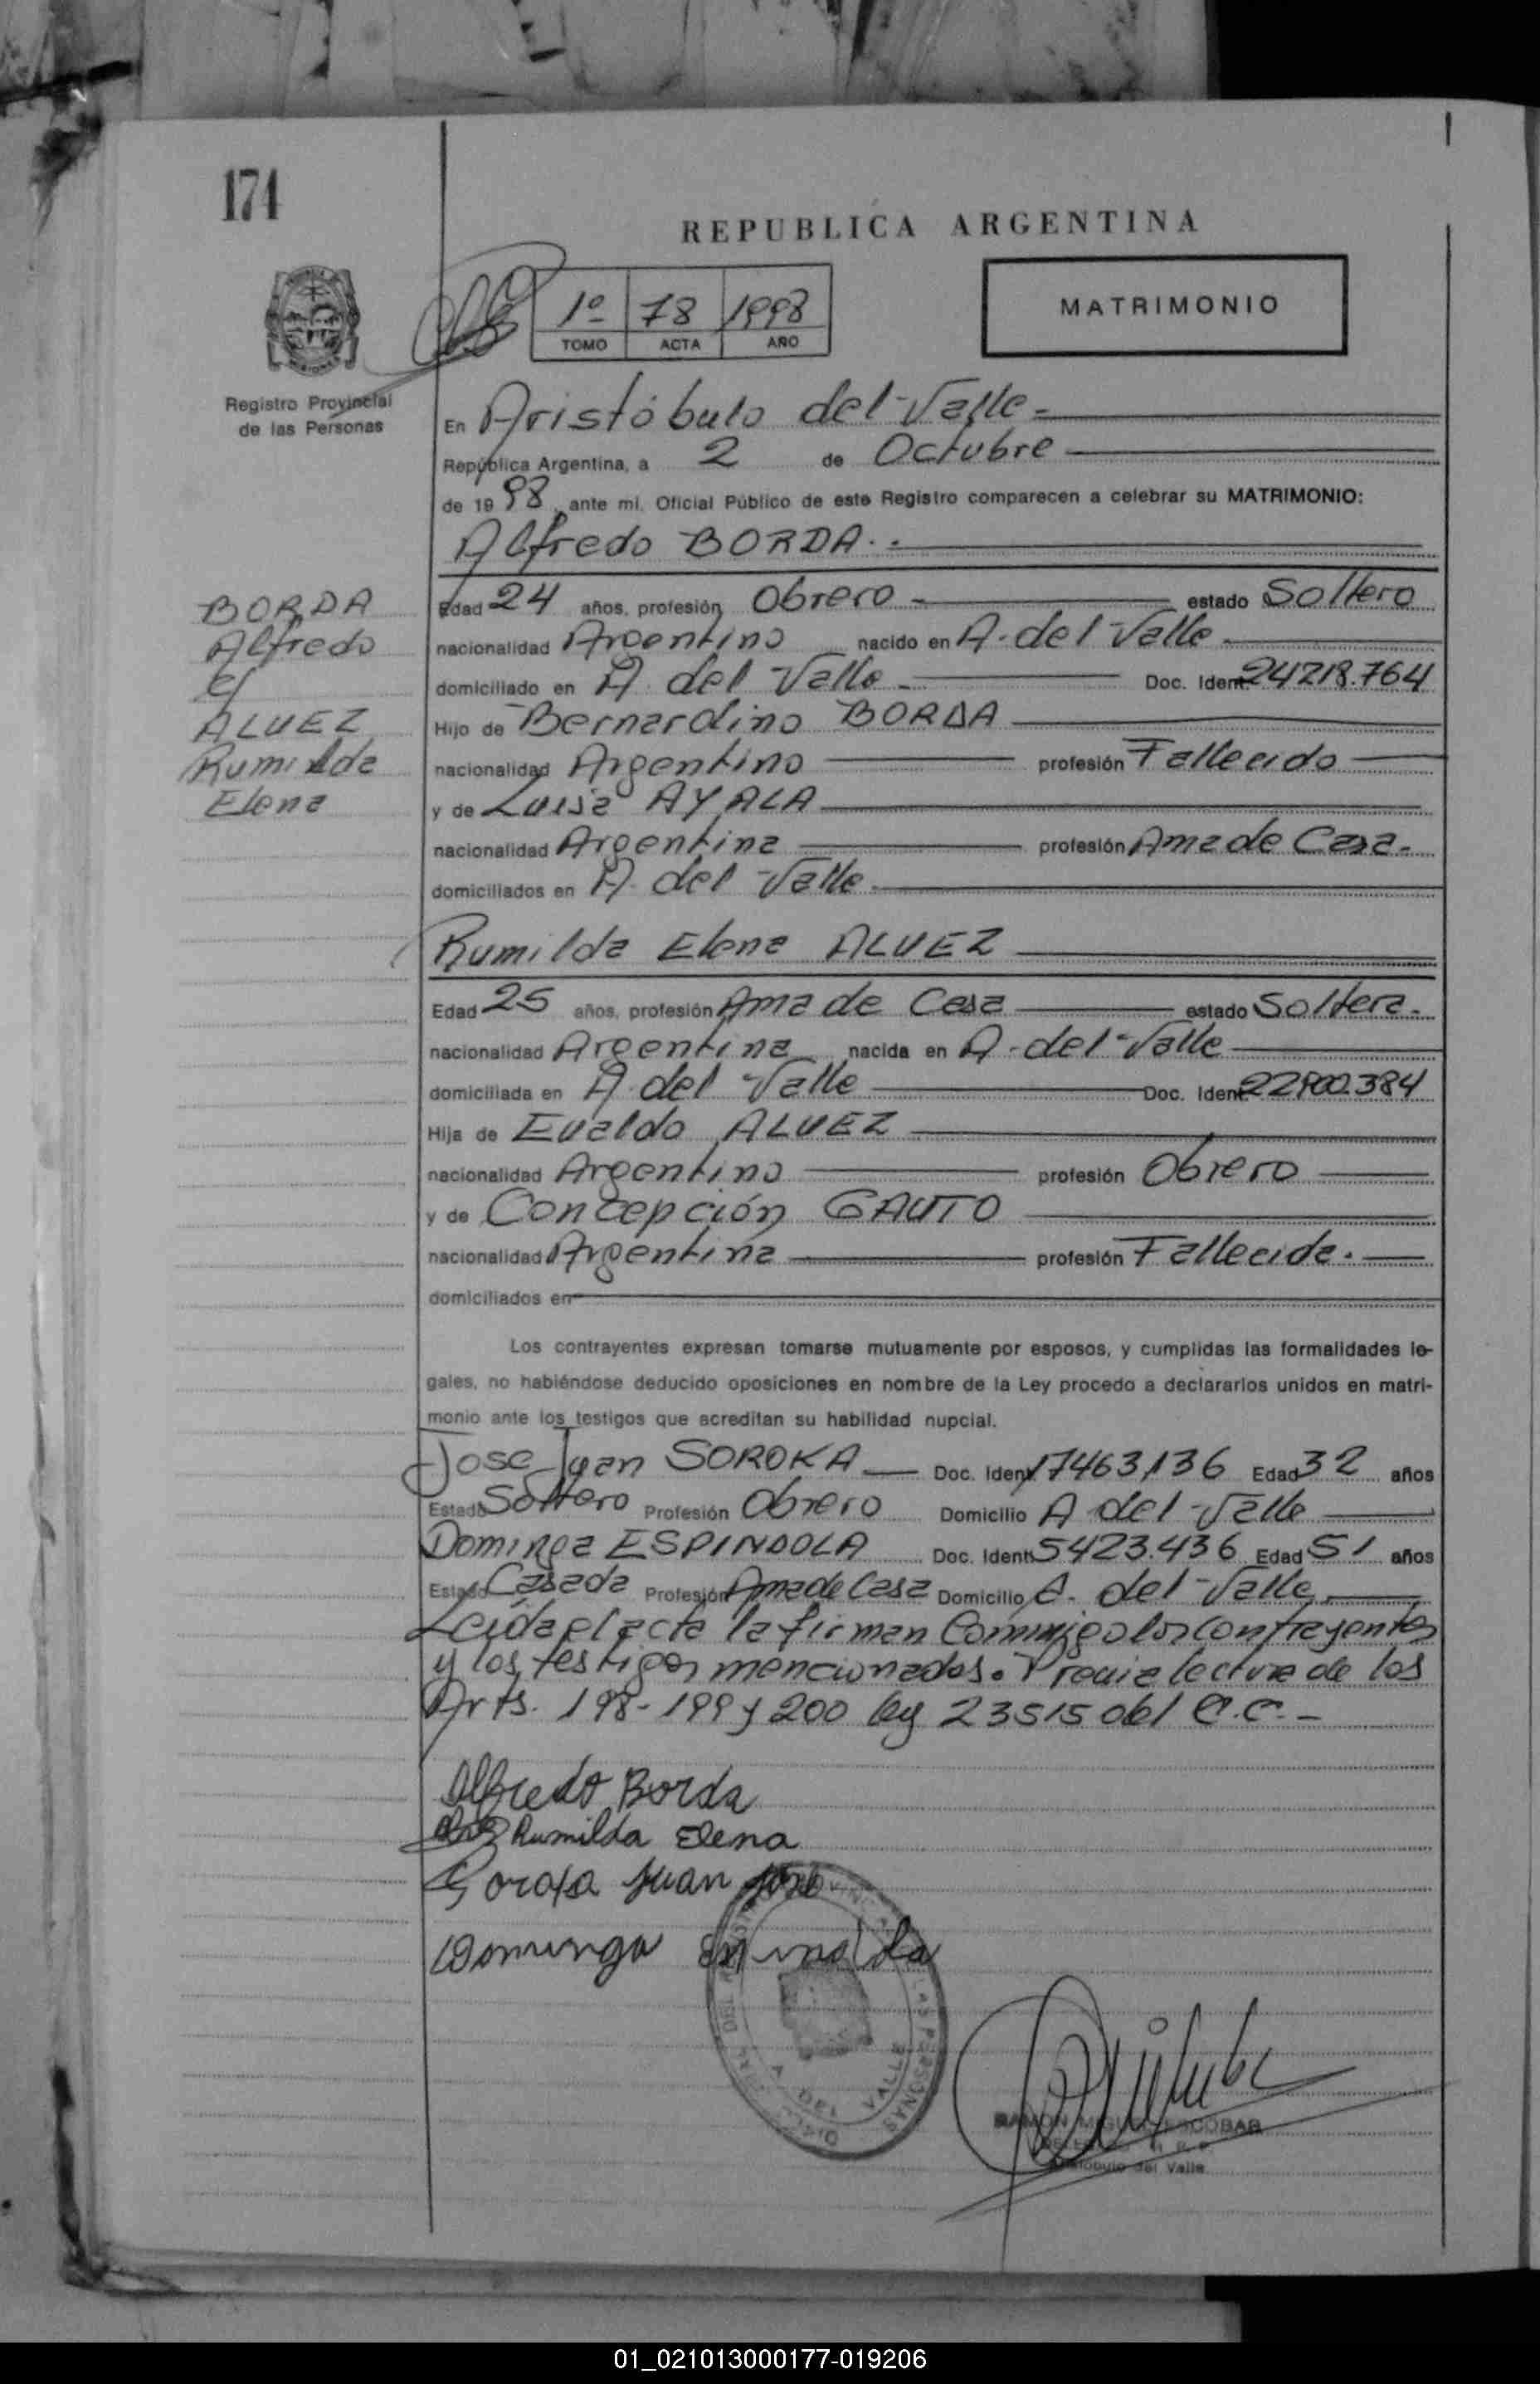 174
REPUBLICA ARGENTINA
1º 78 1998
TOMO ACTA AÑO
MATRIMONIO
Registro Provincial
de las Personas
En Aristóbulo del Valle.
República Argentina, a 2 de Octubre
de 1998, ante mi, Oficial Público de este Registro comparecen a celebrar su MATRIMONIO:
Alfredo BORDA..
BORDA
Alfredo
c/
ALVEZ
Rumilda
Elena
Edad 24 años, profesión Obrero estado Soltero
nacionalidad Argentino nacido en A. del Valle
domiciliado en A. del Valle Doc. Ident. 24218.764
Hijo de Bernardino BORDA
nacionalidad Argentino profesión Fallecido
y de Luisa AYALA
nacionalidad Argentina profesión Ama de Casa.
domiciliados en A. del Valle.
Rumilda Elena ALVEZ
Edad 25 años, profesión Ama de Casa estado Soltera.
nacionalidad Argentina nacida en A. del Valle
domiciliada en A. del Valle Doc. Ident. 22900.384
Hija de Evaldo ALVEZ
nacionalidad Argentino profesión Obrero
y de Concepción GAUTO
nacionalidad Argentina profesión Fallecida.
domiciliados en
Los contrayentes expresan tomarse mutuamente por esposos, y cumplidas las formalidades le-
gales, no habiéndose deducido oposiciones en nombre de la Ley procedo a declararlos unidos en matri-
monio ante los testigos que acreditan su habilidad nupcial.
Jose Juan SOROKA Doc. Ident. 17463136 Edad 32 años
Estado Soltero Profesión Obrero Domicilio A del Valle
Dominga ESPINDOLA Doc. Ident. 5423.436 Edad 51 años
Estado Casada Profesión Ama de Casa Domicilio A. del Valle.
Leida el acta la firman Conmigo los Contrayentes
y los testigos mencionados. Previa lectura de los
Arts. 198-199 y 200 ley 23515 del C.C.-
Alfredo Borda
Rumilda Elena
Juan José
Dominga
A. DEL VALLE
LAS PERSONAS
RAMON MIGUEL ESCOBAR
Aristóbulo del Valle
01_021013000177-019206